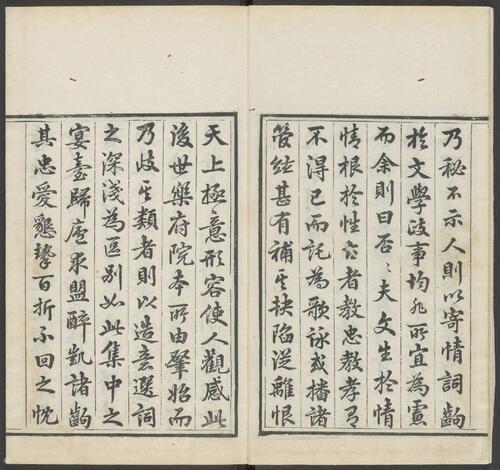 乃秘不示人則以寄情詞齣
於文學政事均非所宜為慮
而余則曰否〻夫文生於情
情根於性古者教忠教孝有
不得已而託為歌詠或播諸
管絃甚有補其缺陷從離恨
天上極意形容使人觀感此
後世樂府院本所由肇始而
乃歧其類者則以造意選詞
之深淺為區別如此集中之
宴臺歸庵求盟醉凱諸齣
其忠愛懇摯百折不回之忱